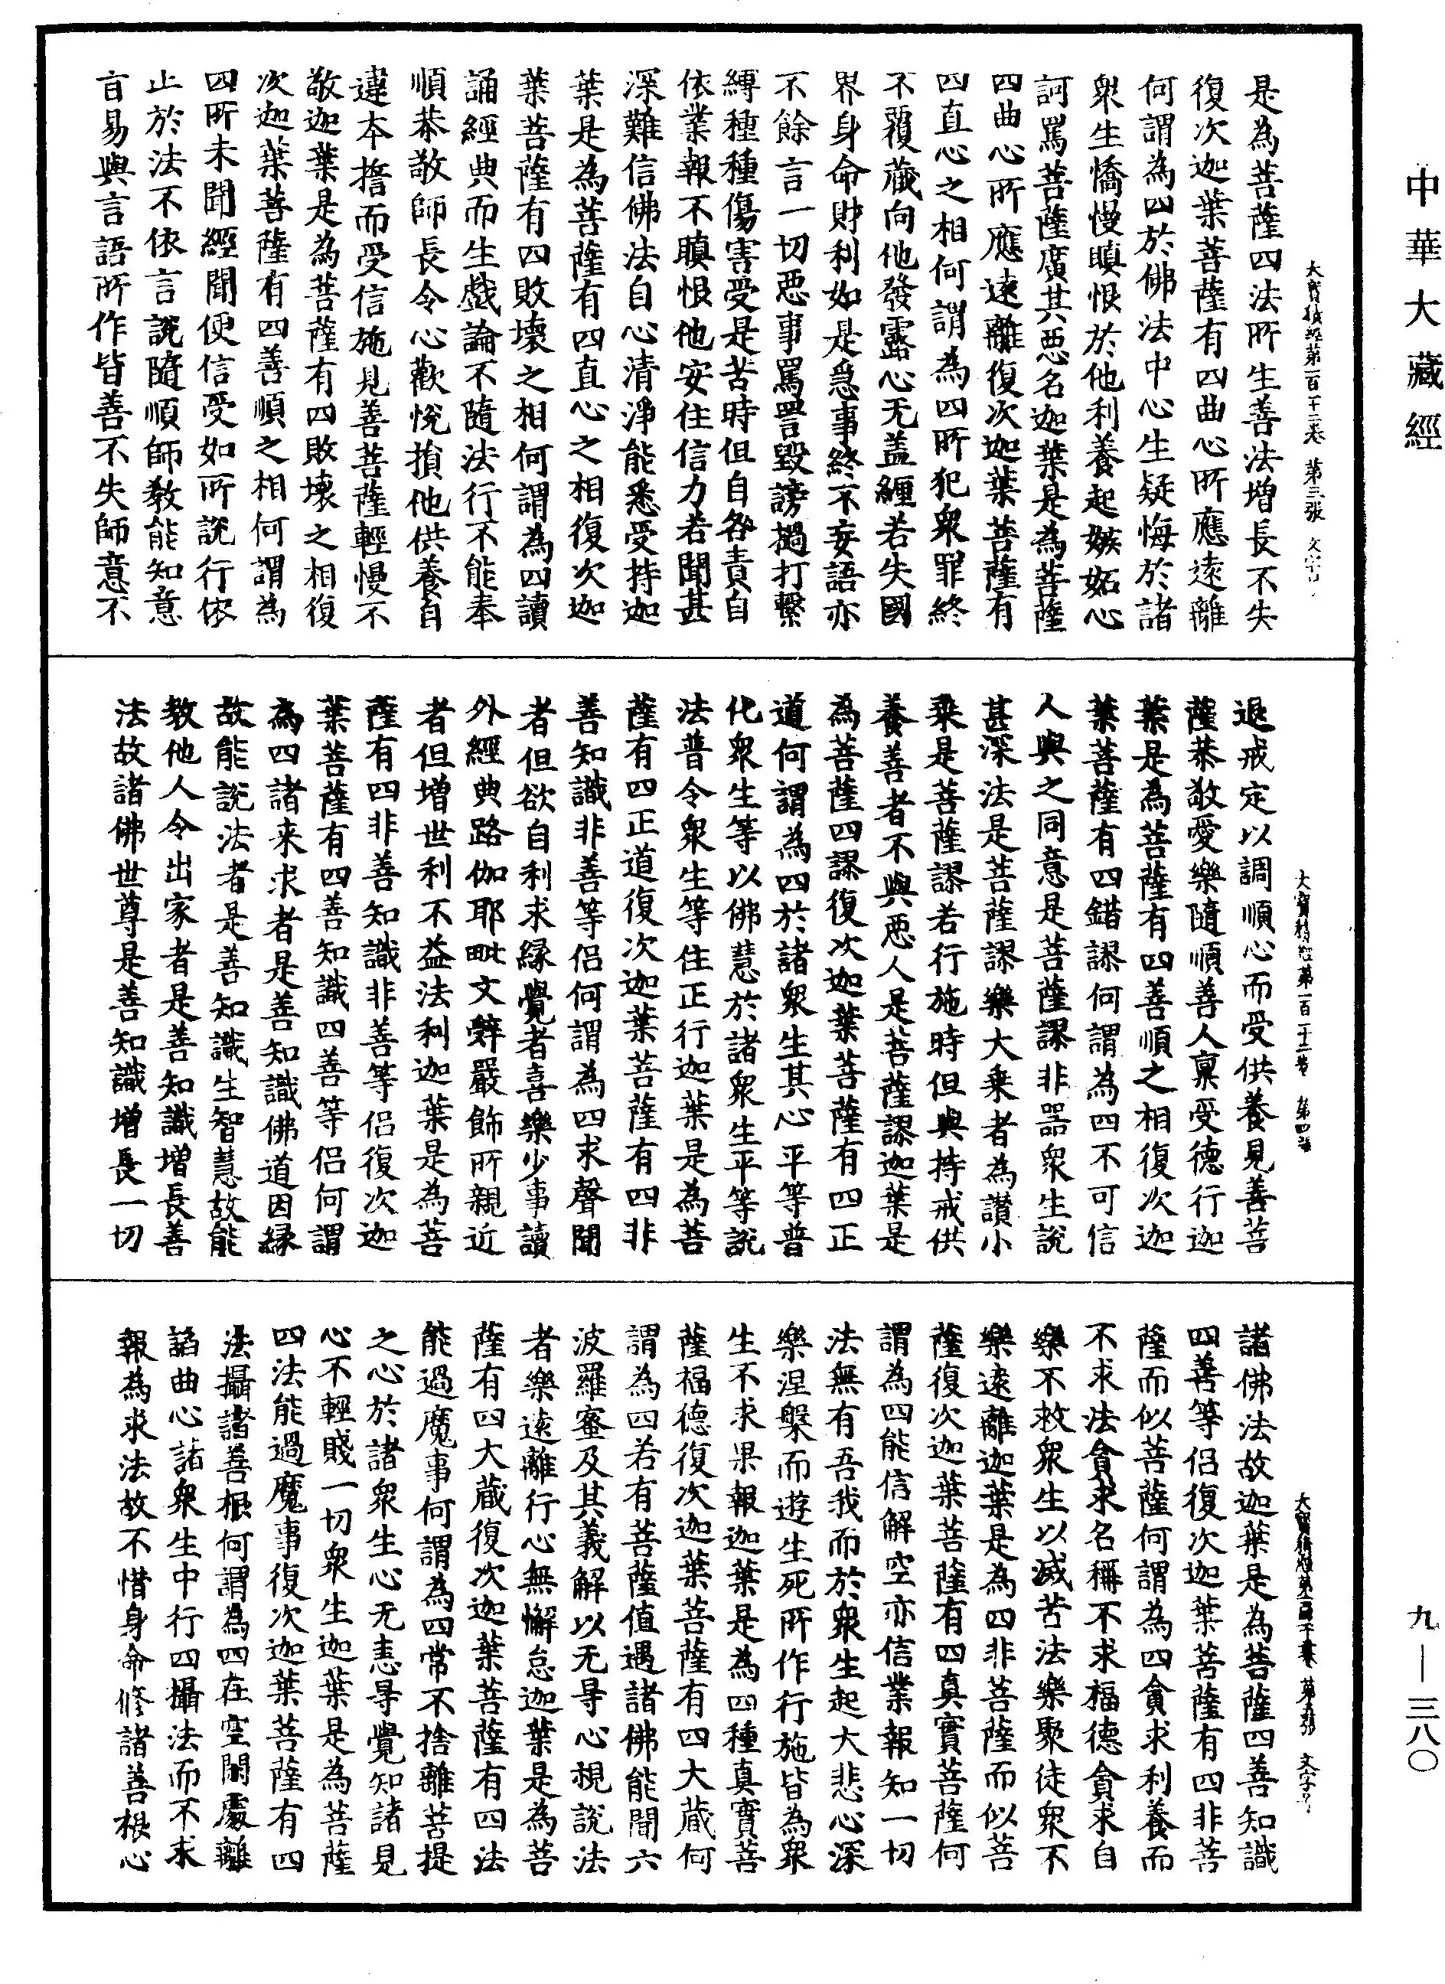 中華大藏經
大寶積經第一百十二卷 第三張 文字号
是為菩薩四法所生善法增長不失
復次迦葉菩薩有四曲心所應遠離
何謂為四於佛法中心生疑悔於諸
衆生憍慢瞋恨於他利養起嫉妬心
訶罵菩薩廣其惡名迦葉是為菩薩
四曲心所應遠離復次迦葉菩薩有
四直心之相何謂為四所犯衆罪終
不覆藏向他發露心无盖纏若失國
界身命財利如是急事終不妄語亦
不餘言一切惡事罵詈毀謗撾打繫
縛種種傷害受是苦時但自咎責自
依業報不瞋恨他安住信力若聞甚
深難信佛法自心清淨能悉受持迦
葉是為菩薩有四直心之相復次迦
葉菩薩有四敗壞之相何謂為四讀
誦經典而生戲論不隨法行不能奉
順恭敬師長令心歡悅損他供養自
違本擔而受信施見善菩薩輕慢不
敬迦葉是為菩薩有四敗壞之相復
次迦葉菩薩有四善順之相何謂為
四所未聞經聞便信受如所說行依
止於法不依言說隨順師教能知意
旨易與言語所作皆善不失師意不
大寶積經第一百十二卷 第四張
退戒定以調順心而受供養見善菩
薩恭敬愛樂隨順善人稟受德行迦
葉是為菩薩有四善順之相復次迦
葉菩薩有四錯謬何謂為四不可信
人與之同意是菩薩謬非器衆生說
甚深法是菩薩謬樂大乘者為讚小
乘是菩薩謬若行施時但與持戒供
養善者不與惡人是菩薩謬迦葉是
為菩薩四謬復次迦葉菩薩有四正
道何謂為四於諸衆生其心平等普
化衆生等以佛慧於諸衆生平等說
法普令衆生等住正行迦葉是為菩
薩有四正道復次迦葉菩薩有四非
善知識非善等侶何謂為四求聲聞
者但欲自利求縁覺者喜樂少事讀
外經典路伽耶毗文辭嚴飾所親近
者但增世利不益法利迦葉是為菩
薩有四非善知識非善等侶復次迦
葉菩薩有四善知識四善等侶何謂
為四諸來求者是善知識佛道因縁
故能說法者是善知識生智慧故能
教他人令出家者是善知識增長善
法故諸佛世尊是善知識增長一切
大寶積經第一百十二卷 第五張 文字号
諸佛法故迦葉是為菩薩四善知識
四善等侶復次迦葉菩薩有四非菩
薩而似菩薩何謂為四貪求利養而
不求法貪求名稱不求福德貪求自
樂不救衆生以滅苦法樂聚徒衆不
樂遠離迦葉是為四非菩薩而似菩
薩復次迦葉菩薩有四真實菩薩何
謂為四能信解空亦信業報知一切
法無有吾我而於衆生起大悲心深
樂涅槃而遊生死所作行施皆為衆
生不求果報迦葉是為四種真實菩
薩福德復次迦葉菩薩有四大藏何
謂為四若有菩薩值遇諸佛能聞六
波羅蜜及其義解以无㝵心視說法
者樂遠離行心無懈怠迦葉是為菩
薩有四大藏復次迦葉菩薩有四法
能過魔事何謂為四常不捨離菩提
之心於諸衆生心无恚㝵覺知諸見
心不輕賤一切衆生迦葉是為菩薩
四法能過魔事復次迦葉菩薩有四
法攝諸善根何謂為四在空閑處離
諂曲心諸衆生中行四攝法而不求
報為求法故不惜身命修諸善根心
九—三八〇